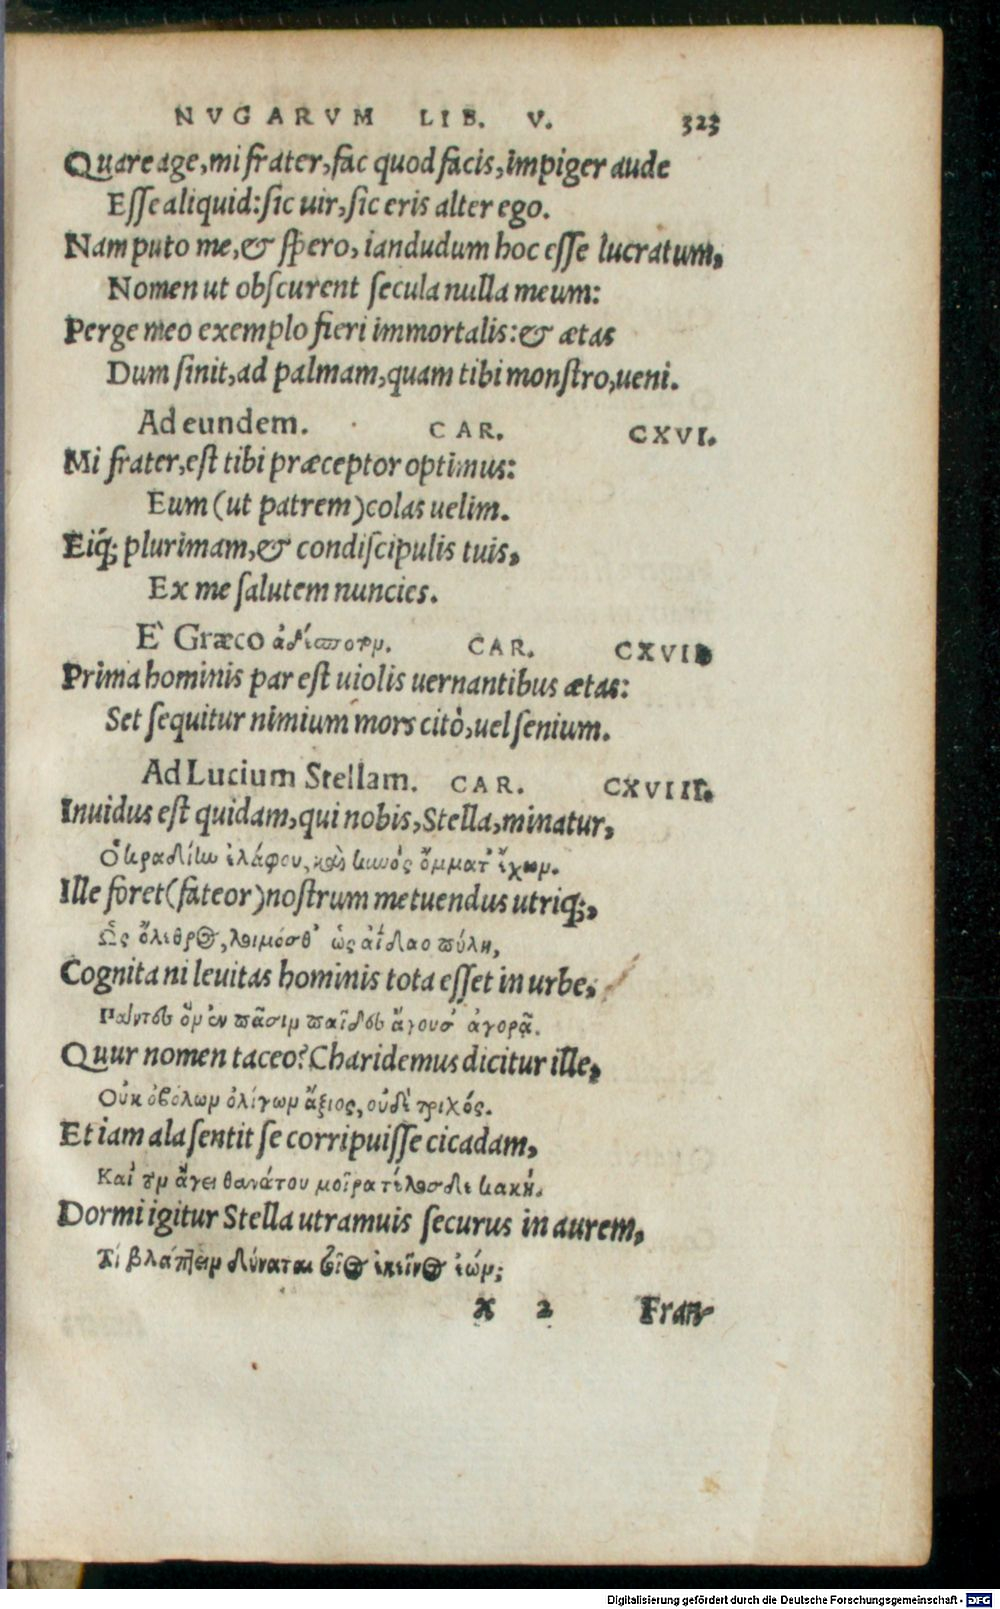 NVGARVM LIB. V. 323
Quare age, mi frater, fac quod facis, impiger aude
Esse aliquid: sic uir, sic eris alter ego.
Nam puto me, & spero, iandudum hoc esse lucratum,
Nomen ut obscurent secula nulla meum:
Perge meo exemplo fieri immortalis: & ætas
Dum sinit, ad palmam, quam tibi monstro, ueni.
Ad eundem. CAR. CXVI.
Mi frater, est tibi præceptor optimus:
Eum (ut patrem) colas uelim.
Eiq́; plurimam, & condiscipulis tuis,
Ex me salutem nuncies.
E` Græco ἀδέσποτμ. CAR. CXVII
Prima hominis par est uiolis uernantibus ætas:
Set sequitur nimium mors citò, uel senium.
Ad Lucium Stellam. CAR. CXVIII.
Inuidus est quidam, qui nobis, Stella, minatur,
Ὁ κραδίην ἐλάφου, καὶ κυνὸς ὄμματ' ἔχων.
Ille foret (fateor) nostrum metuendus utriq́;,
Ὡς ὄλεθρος, λοιμόσθ' ὡς ἀΐδαο πύλη,
Cognita ni leuitas hominis tota esset in urbe,
ὃμ ἐν πᾶσιν παῖδες ἄγουσ' ἀγορᾷ.
Quur nomen taceo? Charidemus dicitur ille,
Οὐκ ὀβόλων ὀλίγων ἄξιος, οὐδὲ τριχός.
Et iam ala sentit se corripuisse cicadam,
Καί ἄγει θανάτου μοῖρα τέλοσδε κακή.
Dormi igitur Stella utramuis securus in aurem,
Τί βλάπτειν δύναται βῖος ἐκεῖνος ἐών;
x 2 Fran-
Digitalisierung gefördert durch die Deutsche Forschungsgemeinschaft - DFG